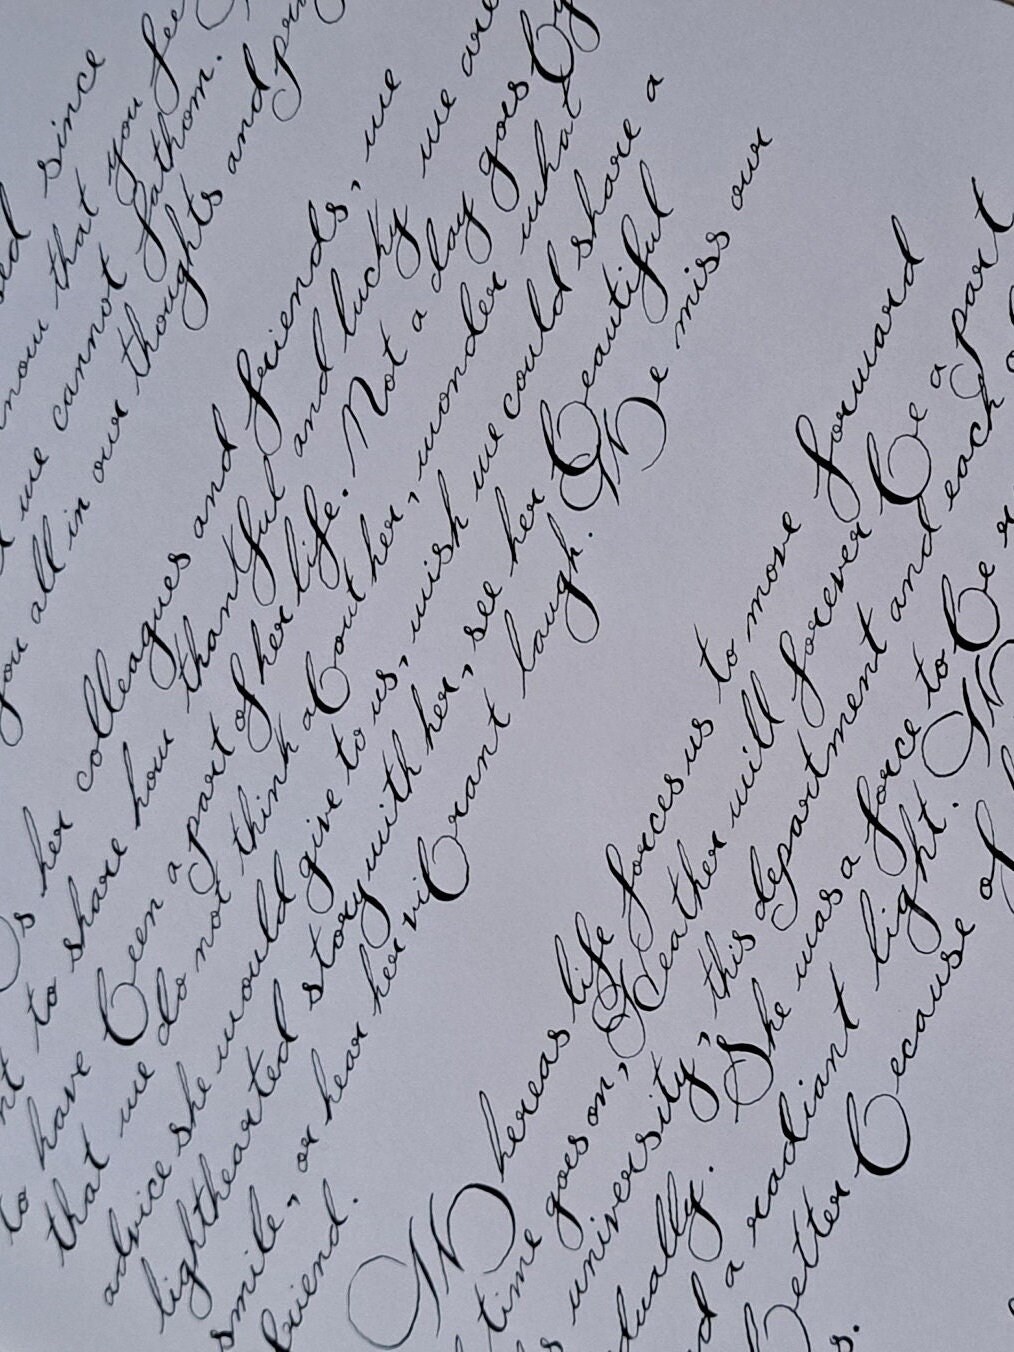 since
know that you
we cannot fathom.
you all in our thoughts and
As her colleagues and friends, we
to share how thankful and lucky we are
to have been a part of her life. Not a day goes by
that we do not think about her, wonder what
advice she would give to us, wish we could share a
lighthearted story with her, see her beautiful
smile, or hear her vibrant laugh. We miss our
friend.
Whereas life forces us to move forward
time goes on, Heather will forever be a part
university, this department and each
She was a force to be
a radiant light. W
better because of